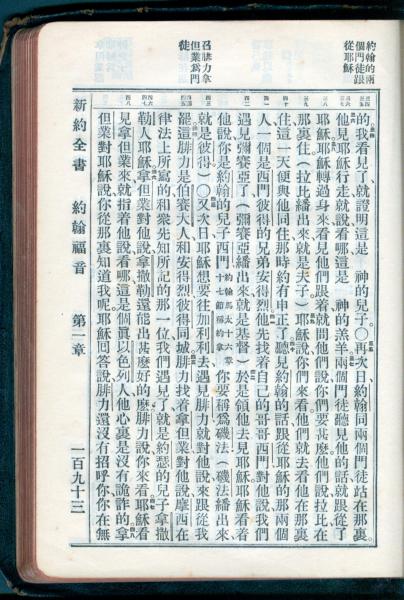 約翰的兩
個門徒跟
從耶穌
召腓力拿
但業爲門
徒
的我看見了就證明這是　神的兒子○再次日約翰同兩個門徒站在那裏
他見耶穌行走就說看哪這是　神的羔羊兩個門徒聽見他的話就跟從了
耶穌耶穌轉過身來看見他們跟着就問他們說你們要甚麼他們說拉比在
那裏住(拉比繙出來就是夫子)耶穌說你們來看他們就去看他在那裏
住這一天便與他同住那時約有申正了聽見約翰的話跟從耶穌的那兩個
人一個是西門彼得的兄弟安得烈他先找着自己的哥哥西門對他說我們
遇見彌賽亞了(彌賽亞繙出來就是基督)於是領他去見耶穌耶穌看着
他說你是約翰的兒子西門約翰馬太十六章十七節稱約拿你要稱爲磯法(磯法繙出來
就是彼得)○又次日耶穌想要往加利利去遇見腓力就對他說來跟從我
罷這腓力是伯賽大人和安得烈彼得同城腓力找着拿但業對他說摩西在
律法上所寫的和衆先知所記的那一位我們遇見了就是約瑟的兒子拿撒
勒人耶穌拿但業對他說拿撒勒還能出甚麼好的麼腓力說你來看耶穌看
見拿但業來就指着他說看哪這是個眞以色列人他心裏是沒有詭詐的拿
但業對耶穌說你從那裏知道我呢耶穌回答說腓力還沒有招呼你你在無
新約全書　約翰福音　第一章　一百九十三